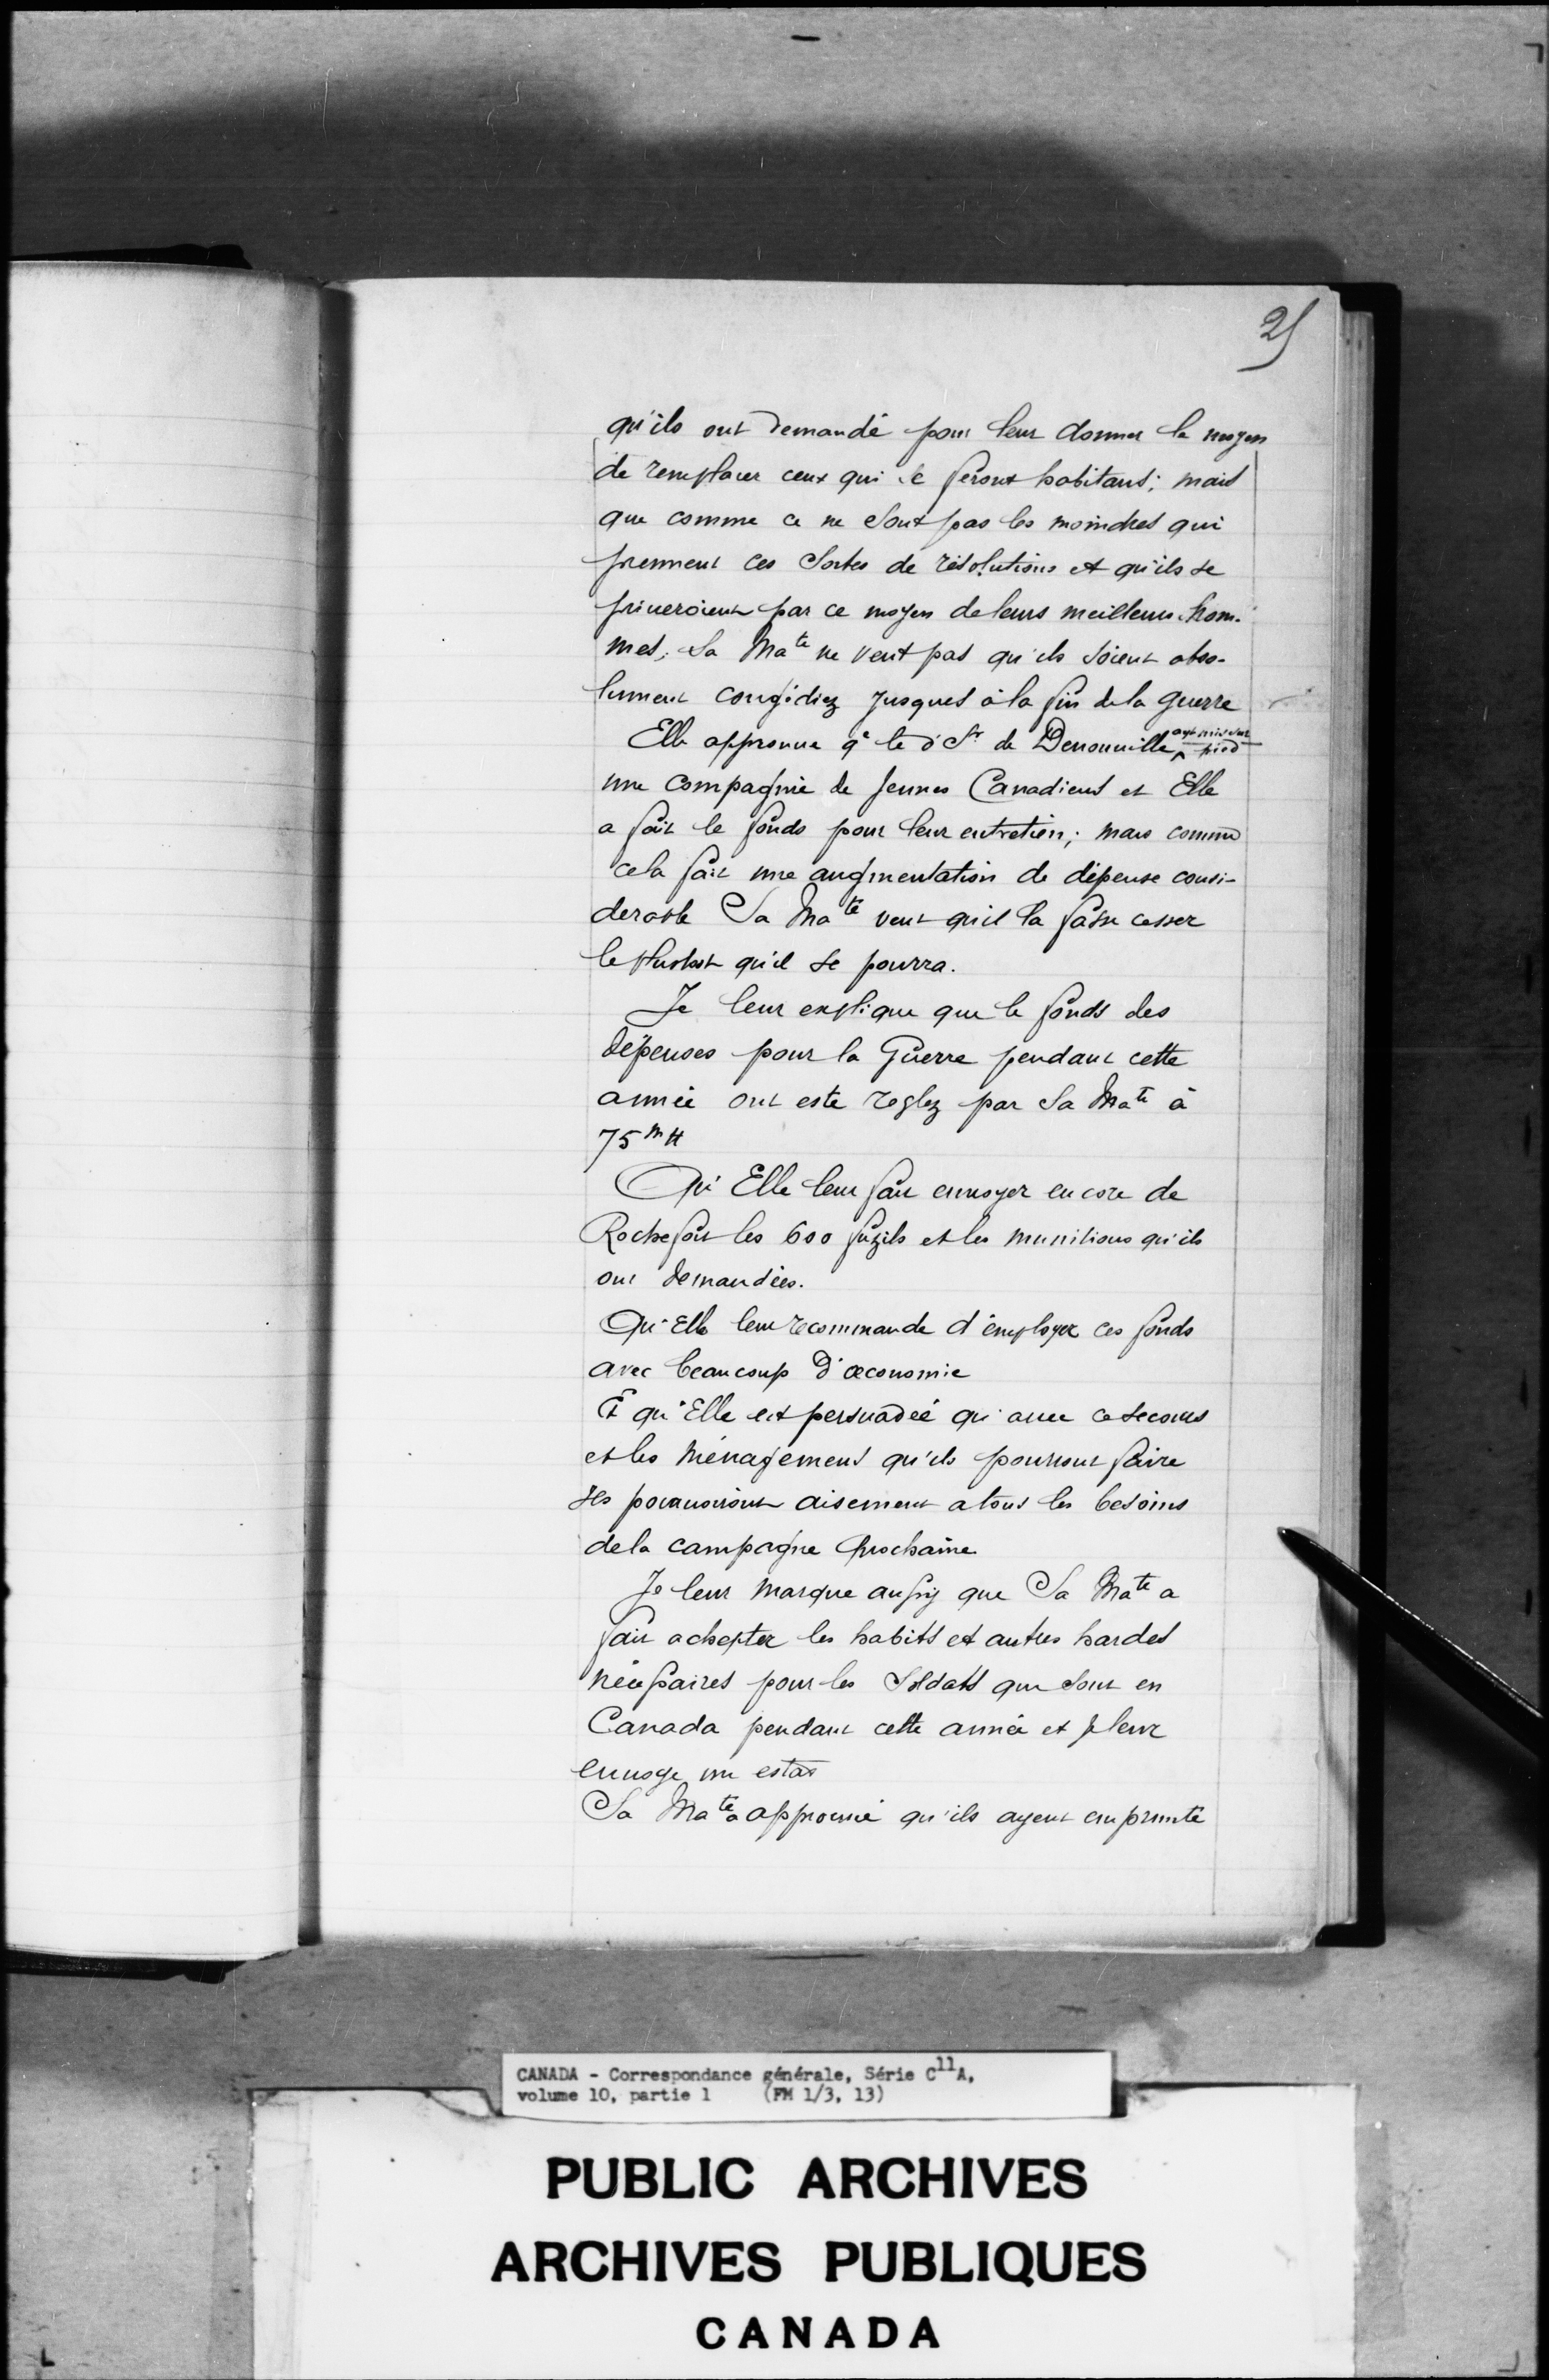 25
qu'ils ont demandé pour leur donner le moyen
de remplacer ceux qui se feront habitans; mais
que comme ce ne sont pas les moindres qui
prennent ces Sortes de résolutions et qu'ils se
priueroient par ce moyen de leurs meilleurs hom-
mes, Sa Maté ne veut pas qu'ils soient abso-
lument congédiez jusques à la fin de la guerre
Elle approuue q̃ le d. Sr de Denonuille ayt mis sur pied
une compagnie de jeunes Canadiens et Elle
a fait le fonds pour leur entretien; mais comme
cela fait une augmentation de dépense consi-
derable Sa Maté veut qu'il la fasse cesser
le plustost qu'il se pourra.
Je leur explique que le fonds des
dépenses pour la Guerre pendant cette
année ont esté reglez par Sa Maté à
75 m tt
Qu'Elle leur fait enuoyer encore de
Rochefort les 600 fuzils et les munitions qu'ils
ont demandées.
Qu'Elle leur recommande d'employer ces fonds
avec beaucoup d'œconomie
Et qu'Elle est persuadée qu'auec ce secours
et les ménagemens qu'ils pourront faire
Ils pouruoiront aisement a tous les besoins
de la campagne prochaine
Je leur marque aussy que Sa Maté a
fait achepter les habits et autres hardes
nécessaires pour les Soldats qui sont en
Canada pendant cette année et je leur
enuoye un estat
Sa Maté a approuué qu'ils ayent emprunté
CANADA - Correspondance générale, Série C11A,
volume 10, partie 1 (FM 1/3, 13)
PUBLIC ARCHIVES
ARCHIVES PUBLIQUES
CANADA